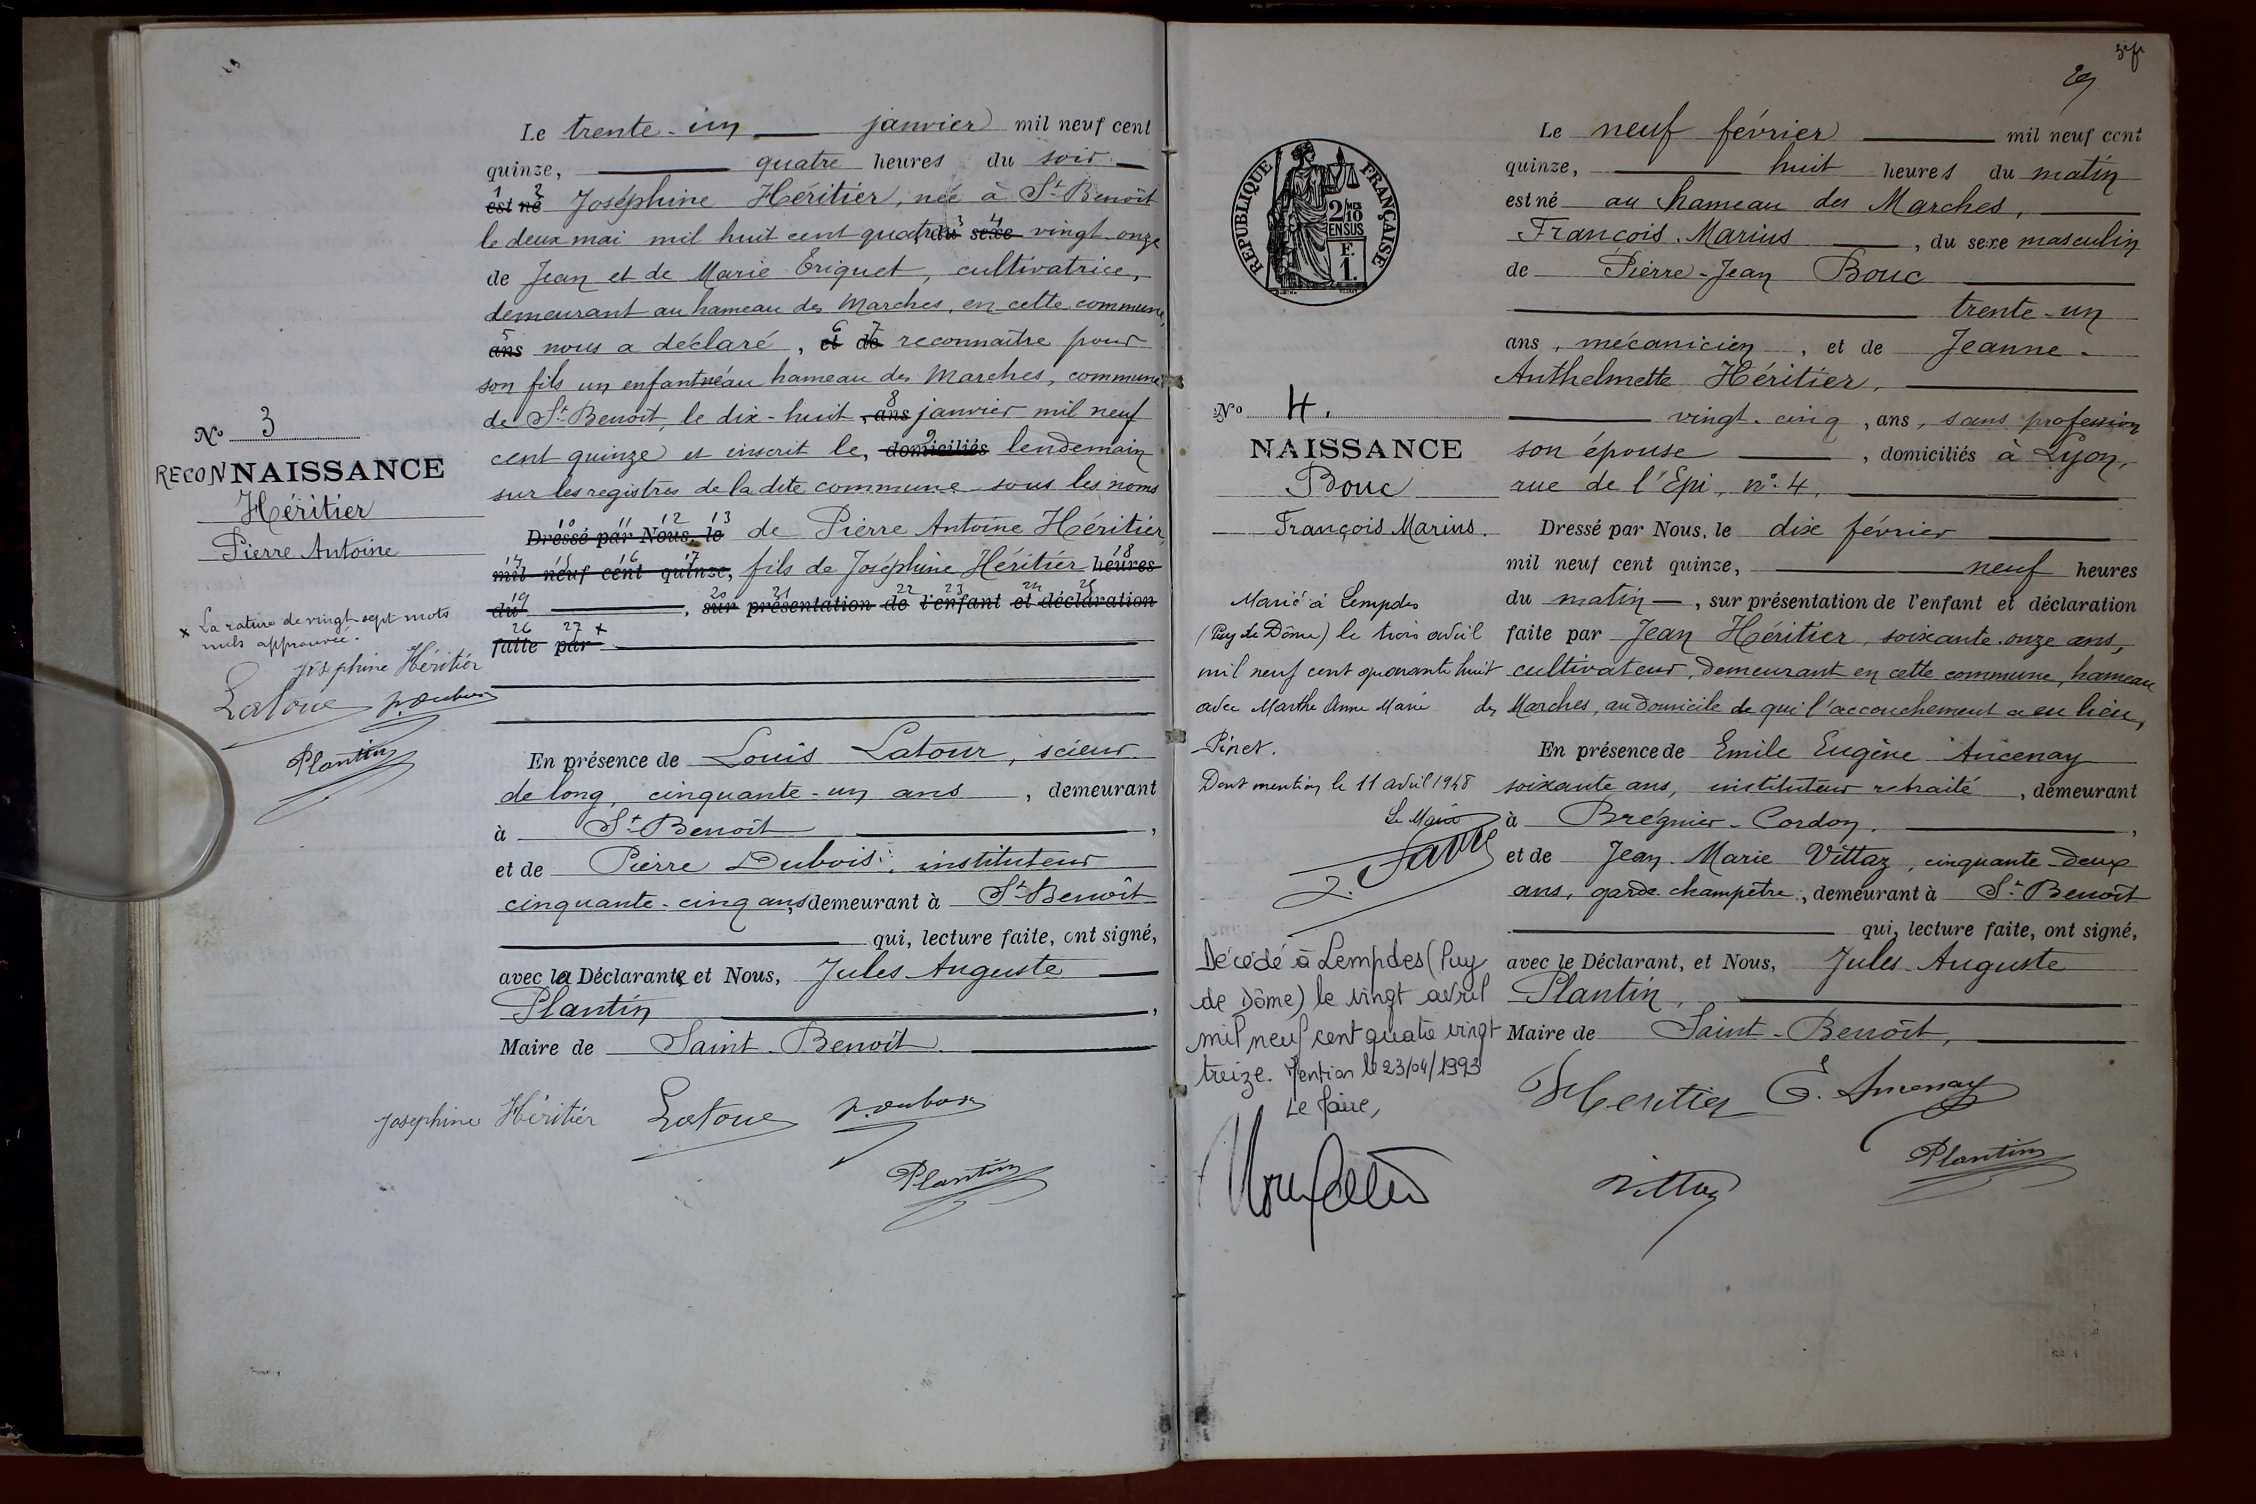 Le trente-un janvier mil neuf cent
quinze, quatre heures du soir
1 2
est né Joséphine Héritier, née à St Benoît
3 4
le deux mai mil huit cent quatre du sexe vingt-onze
de Jean et de Marie Triquet, cultivatrice,
demeurant au hameau des Marches, en cette commune,
5 6 7
ans nous a déclaré, et de reconnaître pour
son fils un enfant né au hameau des Marches, commune
8
de St Benoît, le dix-huit, ans janvier mil neuf
9
cent quinze et inscrit le, domiciliés lendemain
sur les registres de la dite commune sous les noms
10 11 12 13
Dressé par Nous, le de Pierre Antoine Héritier,
14 15 16 17 18
mil neuf cent quinze, fils de Joséphine Héritier heures
19 20 21 22 23 24 25
du, sur présentation de l'enfant et déclaration
26 27 x
faite par
No 3
RECONNAISSANCE
Héritier
Pierre Antoine
x La rature de vingt-sept mots
nuls approuvée.
Joséphine Héritier
Latour P. Dubois
Plantin
En présence de Louis Latour, scieur
de long, cinquante-un ans, demeurant
à St Benoît,
et de Pierre Dubois, instituteur
cinquante-cinq ans, demeurant à St Benoît
qui, lecture faite, ont signé,
avec la Déclarante, et Nous, Jules Auguste
Plantin,
Maire de Saint-Benoît.
Joséphine Héritier Latour P. Dubois
Plantin
29
REPUBLIQUE FRANÇAISE
2/10
EN SUS
F.
1.
No 4.
NAISSANCE
Bouc
François Marius.
Marié à Lempdes
(Puy de Dôme) le trois avril
mil neuf cent quarante huit
avec Marthe Anne Marie
Pinet.
Dont mention le 11 avril 1948
Le Maire
J. Favre
Décédé à Lempdes (Puy
de Dôme) le vingt avril
mil neuf cent quatre vingt
treize. Mention le 23/04/1993
Le Maire,
Le neuf février mil neuf cent
quinze, huit heures du matin
est né au hameau des Marches,
François Marius, du sexe masculin
de Pierre-Jean Bouc
trente-un
ans, mécanicien, et de Jeanne-
Anthelmette Héritier,
vingt-cinq, ans, sans profession
son épouse, domiciliés à Lyon,
rue de l'Epi, no 4.
Dressé par Nous, le dix février
mil neuf cent quinze, neuf heures
du matin, sur présentation de l'enfant et déclaration
faite par Jean Héritier, soixante-onze ans,
cultivateur, demeurant en cette commune, hameau
des Marches, au domicile de qui l'accouchement a eu lieu,
En présence de Emile Eugène Ancenay
soixante ans, instituteur retraité, demeurant
à Brégnier-Cordon,
et de Jean-Marie Vittaz, cinquante-deux
ans, garde-champêtre, demeurant à St Benoît
qui, lecture faite, ont signé,
avec le Déclarant, et Nous, Jules Auguste
Plantin,
Maire de Saint-Benoît,
Héritier E. Ancenay
Plantin
Vittaz